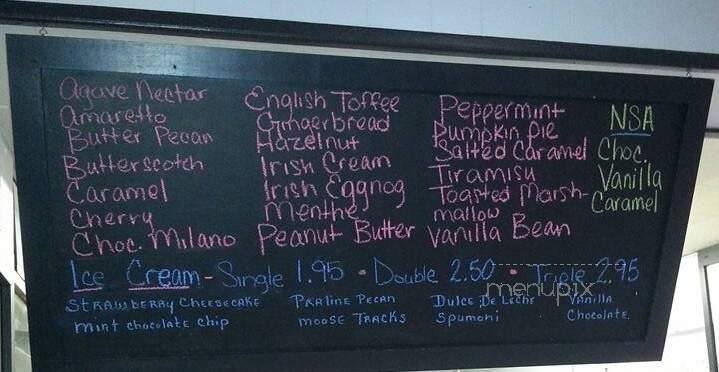 Agave Nectar
Amaretto
Butter Pecan
Butterscotch
Caramel
Cherry
Choc. Milano
English Toffee
Gingerbread
Hazelnut
Irish Cream
Irish Eggnog
Menthe
Peanut Butter
Peppermint
Pumpkin pie
Salted Caramel
Tiramisu
Toasted Marsh-
mallow
Vanilla Bean
NSA
Choc.
Vanilla
Caramel
Ice Cream - Single 1.95 • Double 2.50 • Triple 2.95
Strawberry Cheesecake
Praline Pecan
Dulce De Leche
Vanilla
mint chocolate chip
moose Tracks
Spumoni
Chocolate
menupix